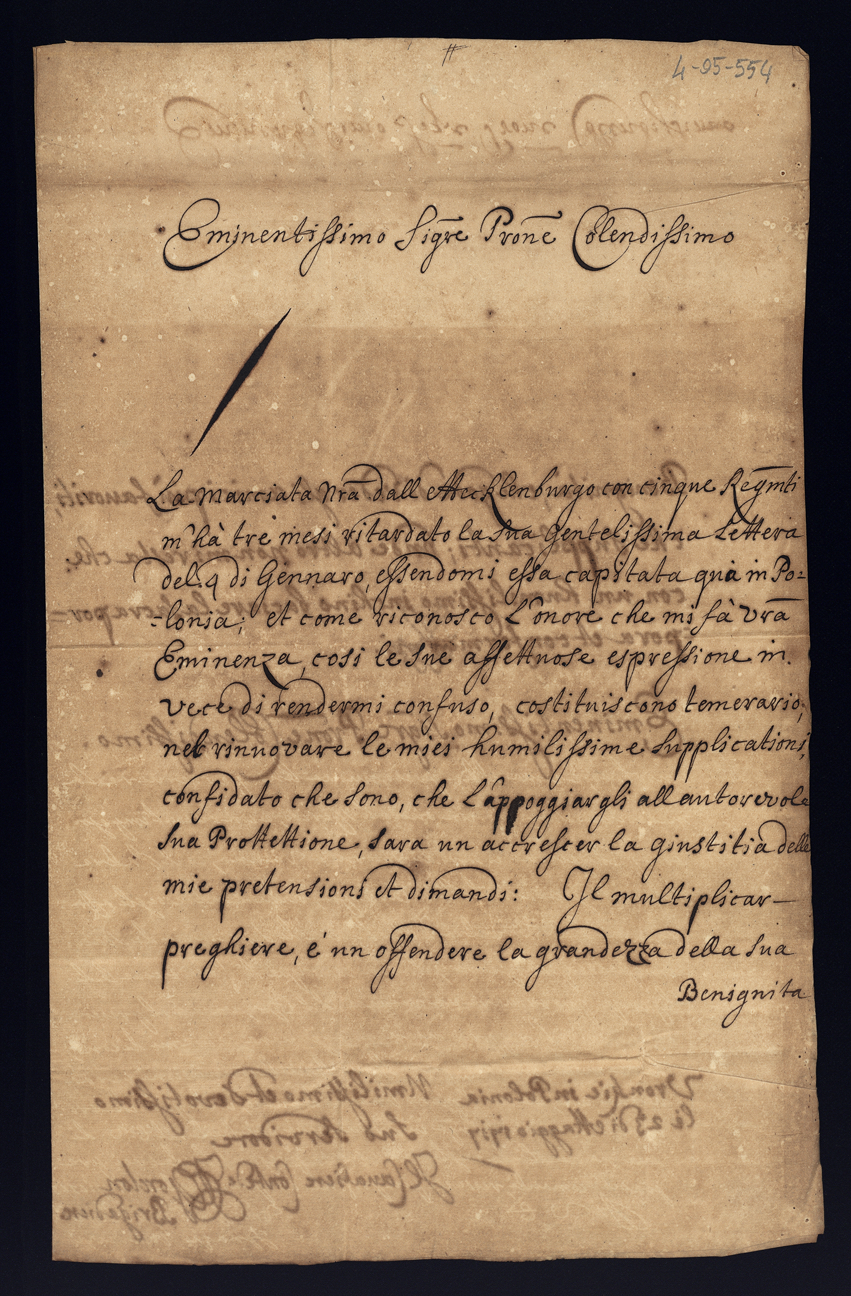 #
4-95-554
Eminentissimo Sigre Prone Colendissimo
La Marciata Nrã dall Mecklenburgo con cinque Regmti
m'hà trè mesi ritardato la sua gentelissima Lettera
del 9 di Gennaro, essendomi essa capitata quà in Po=
=lonia; et come riconosco L'onore che mi fà vrã
Eminenza, cosi le sue affettuose espressione in
vece di rendermi confuso, costituiscono temerario,
nel rinuovare le miei humilissime supplicationi,
confidato che sono, che L'appoggiargli all autorevole
sua Prottettione, sara un accrescer la giustitia delle
mie pretensioni et dimandi: Il multiplicar—
preghiere, e' un offendere la grandezza della sua
Benignita